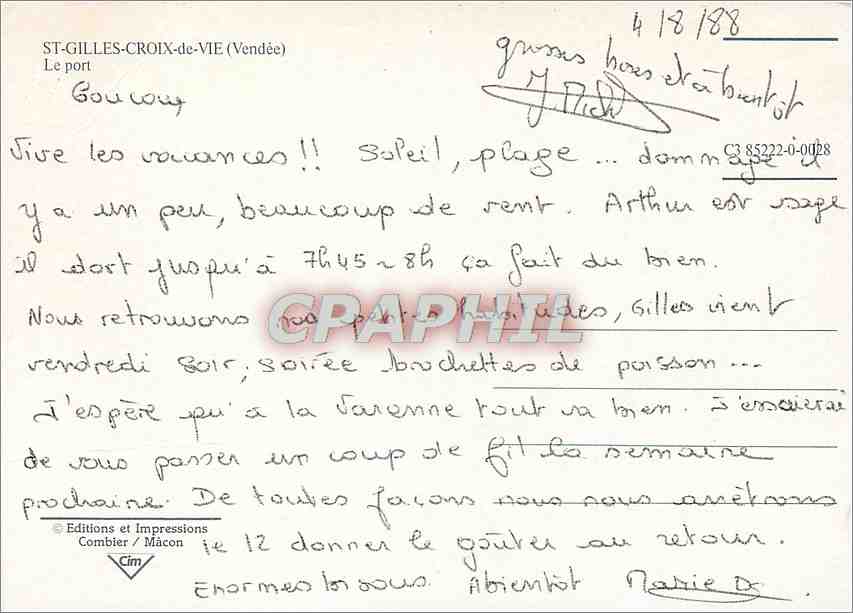 4/8/88
ST-GILLES-CROIX-de-VIE (Vendée)
Le port
grosses bises et à bientôt
Coucou
Vive les vacances !! Soleil, plage ... dommage il
C3 85222-0-0028
y a un peu, beaucoup de vent. Arthur est sage
il dort jusqu'à 7h45 ~ 8h ça fait du bien.
Nous retrouvons nos petites habitudes, Gilles vient
CPAPHIL
vendredi soir, soirée brochettes de poisson ...
J'espère qu'à la Varenne tout va bien. J'essaierai
de vous passer un coup de fil la semaine
prochaine. De toutes façons nous nous arrêtrons
© Editions et Impressions
Combier / Mâcon
Cim
le 12 donner le goûter au retour.
Enormes bisous. Abientôt Marie